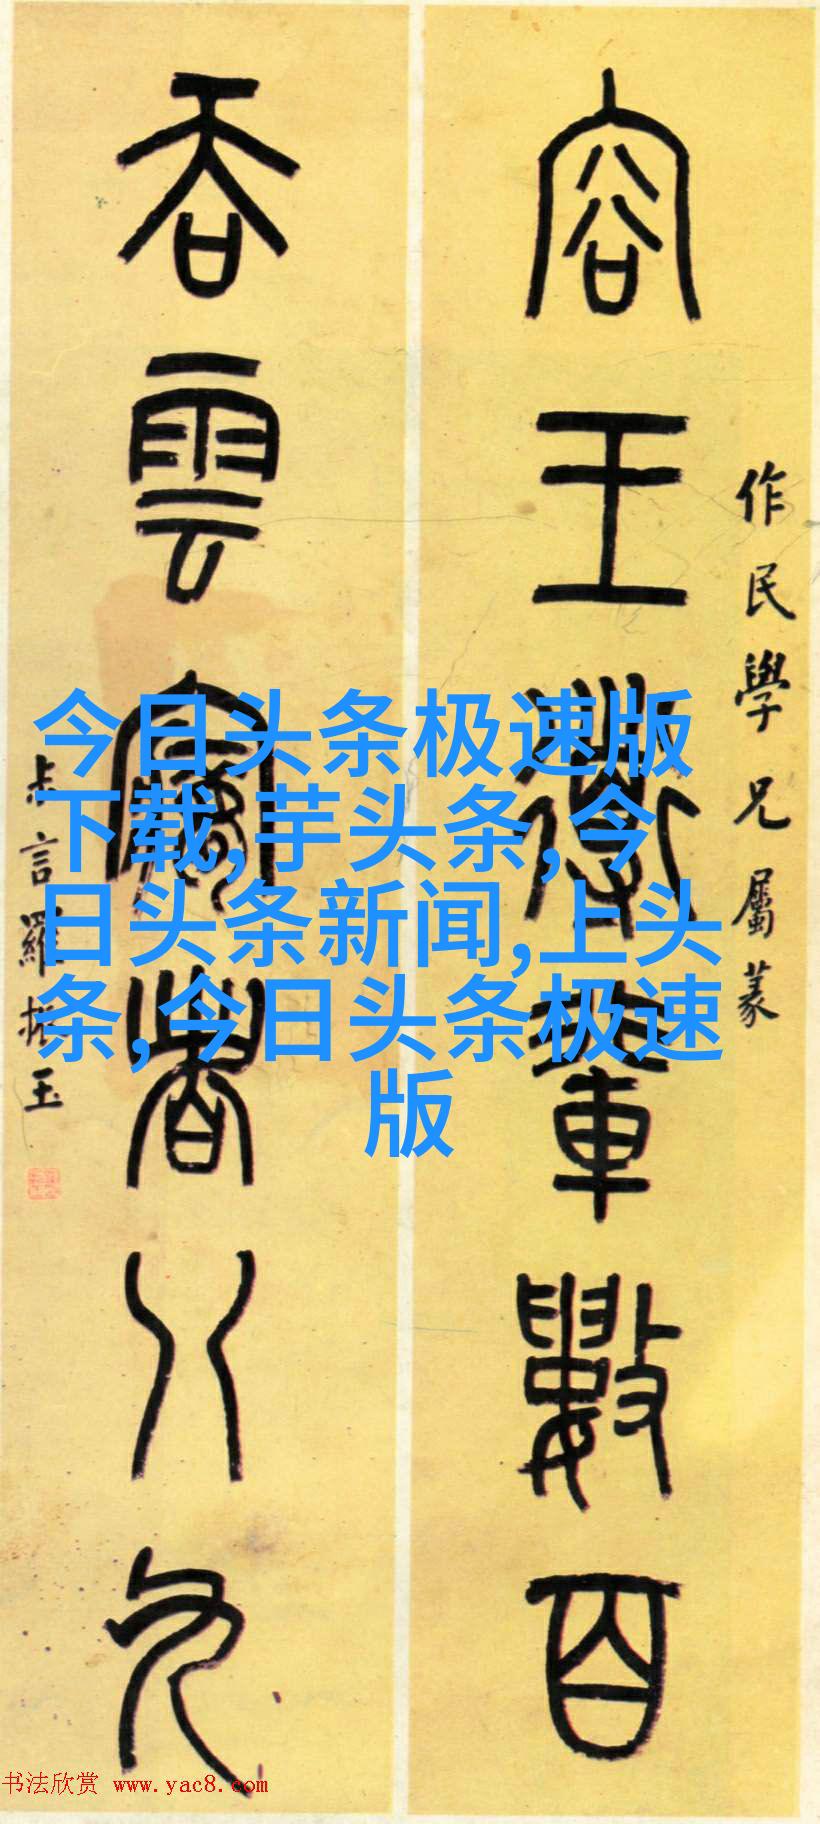 作民學兄屬篆
容王導輩數百
吞雲夢者八九
叔言羅振玉
今日头条极速版
下载,芋头条,今
日头条新闻,上头
条,今日头条极速
版
书法欣赏 www.yac8.com